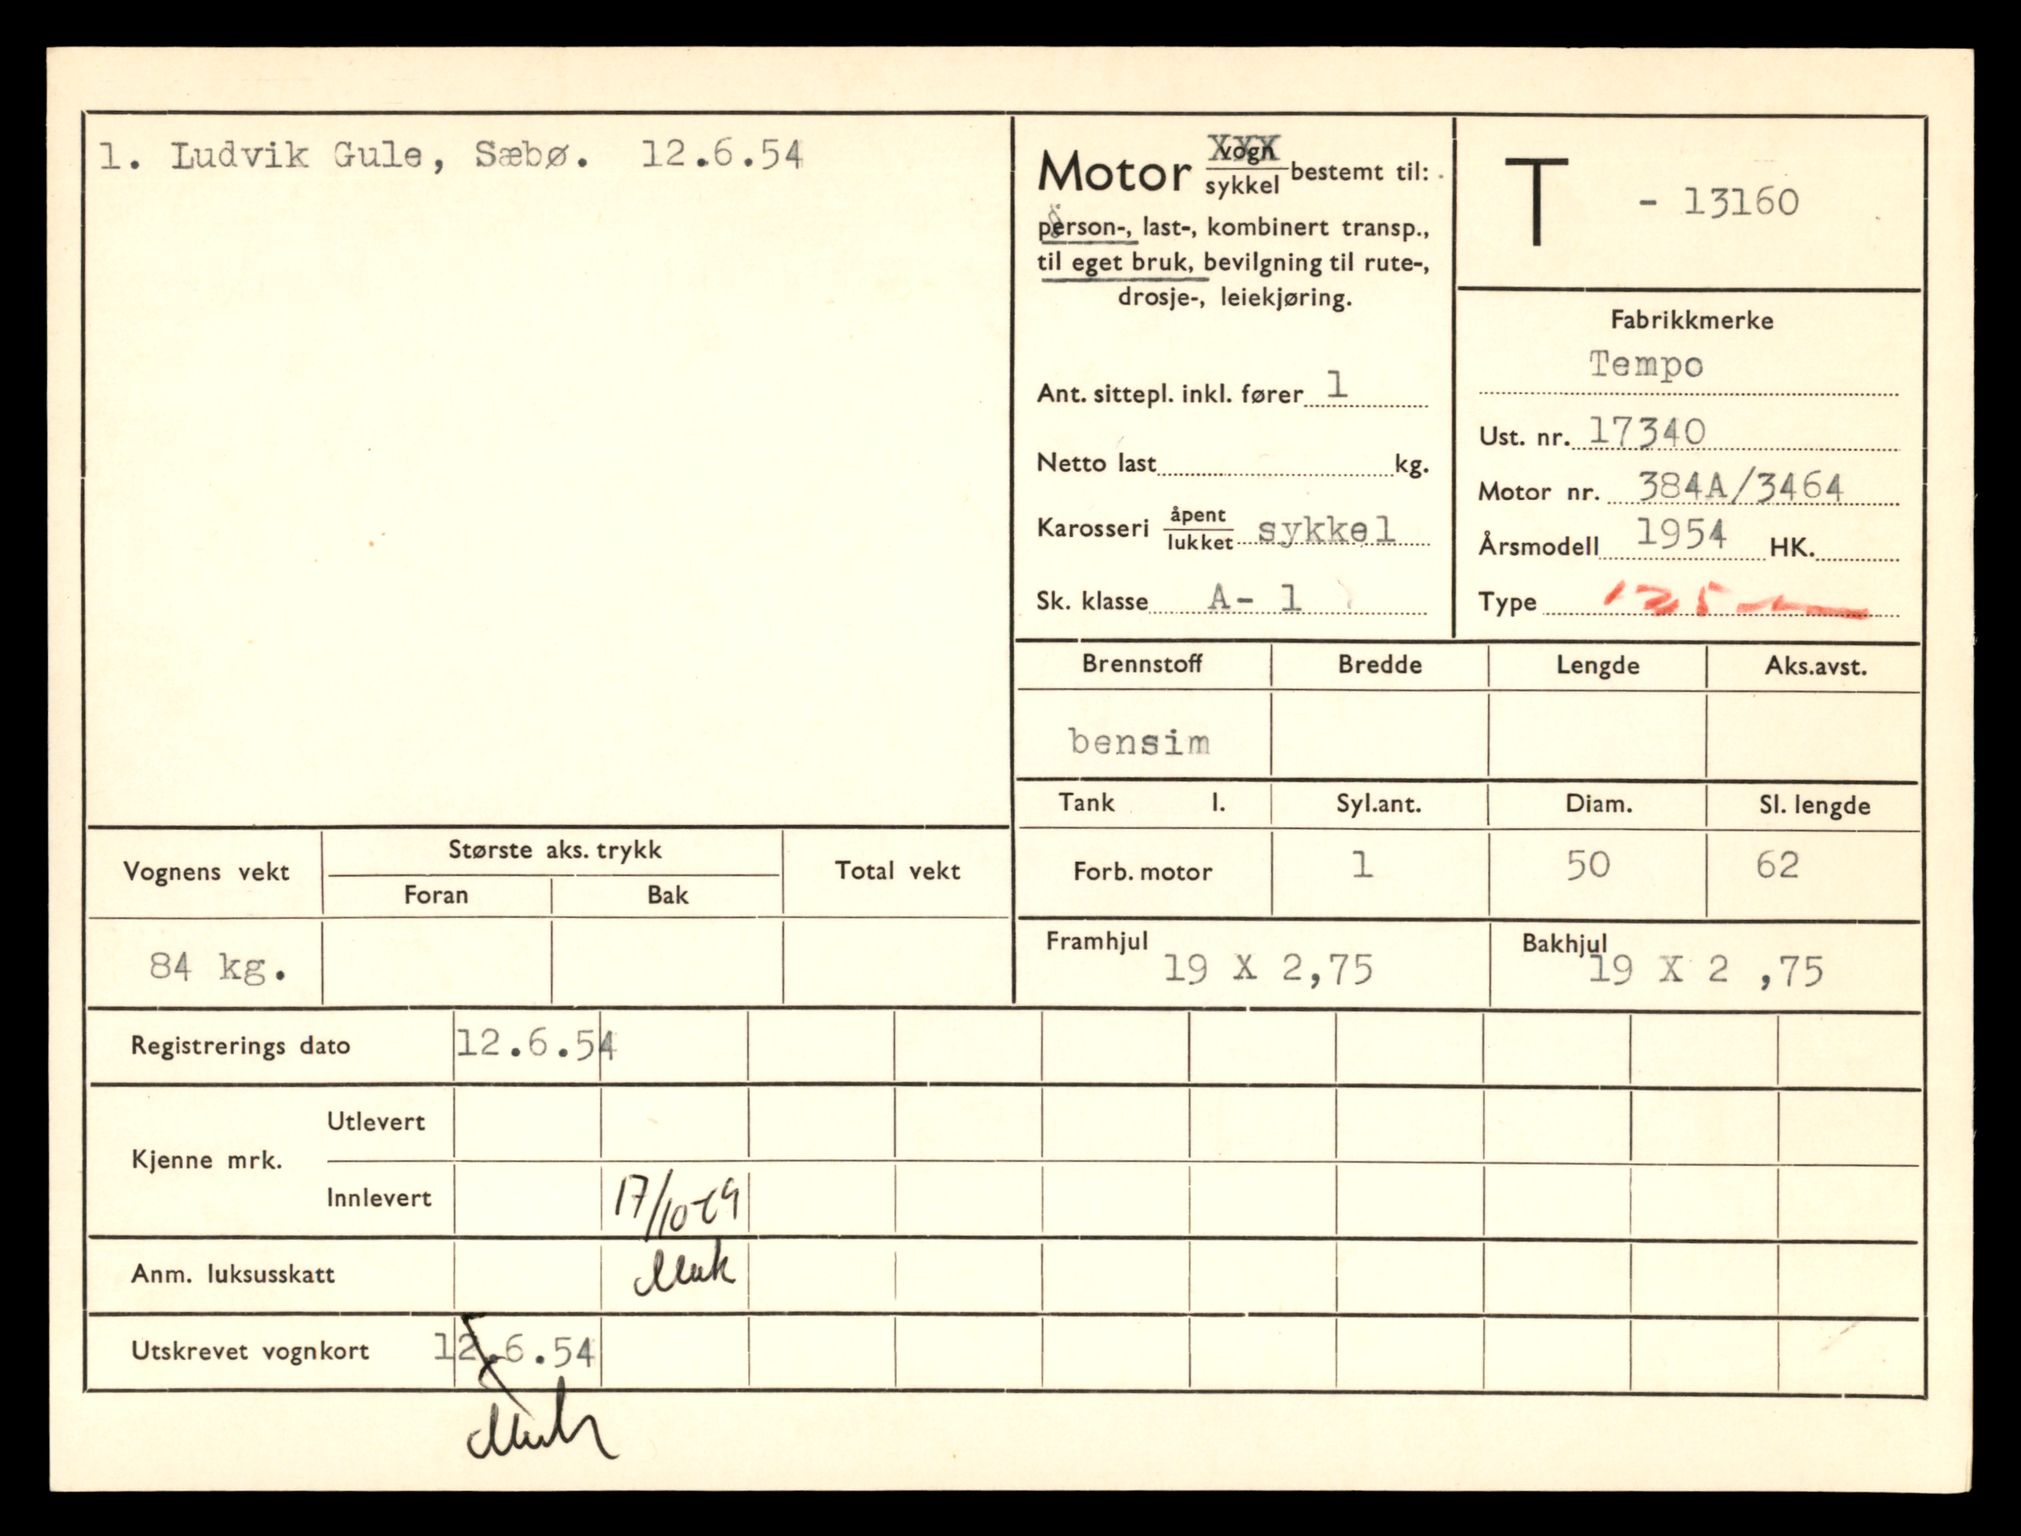 1. Ludvik Gule, Sæbø. 12.6.54
Motor vogn/sykkel bestemt til:
person-, last-, kombinert transp.,
til eget bruk, bevilgning til rute-,
drosje-, leiekjøring.
Ant. sittepl. inkl. fører 1
Netto last kg.
Karosseri åpent/lukket sykkel
Sk. klasse A- 1
T - 13160
Fabrikkmerke
Tempo
Ust. nr. 17340
Motor nr. 384A/3464
Årsmodell 1954 HK.
Type 125
Brennstoff Bredde Lengde Aks.avst.
bensim
Tank l. Syl.ant. Diam. Sl. lengde
Forb. motor 1 50 62
Framhjul 19 X 2,75 Bakhjul 19 X 2 ,75
Vognens vekt Største aks. trykk Total vekt
Foran Bak
84 kg.
Registrerings dato 12.6.54
Kjenne mrk. Utlevert
Innlevert 17/10-69
Anm. luksusskatt
Utskrevet vognkort 12.6.54